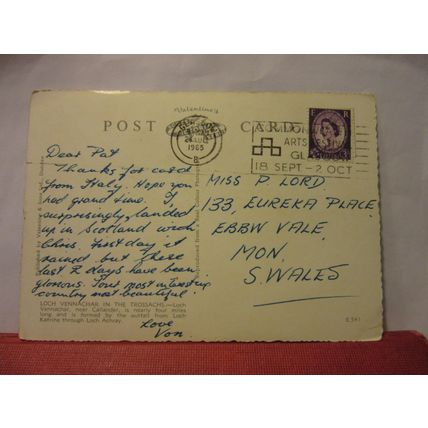 Valentine's
POST CARD
1965
B
ARTS
18 SEPT - 2 OCT
E R
Dear Pat
Thanks for card
from Italy. Hope you
had grand time. I
surprisingly landed
up in Scotland with
bliss. First day it
rained but these
last 2 days have been
glorious. Tout most interesting
country most beautiful.
Love
Von.
MISS P. LORD
133, EUREKA PLACE
EBBW VALE,
MON.
S. WALES
LOCH VENNACHAR IN THE TROSSACHS—Loch
Vennachar, near Callander, is nearly four miles
long and is formed by the outfall from Loch
Katrine through Loch Achray.